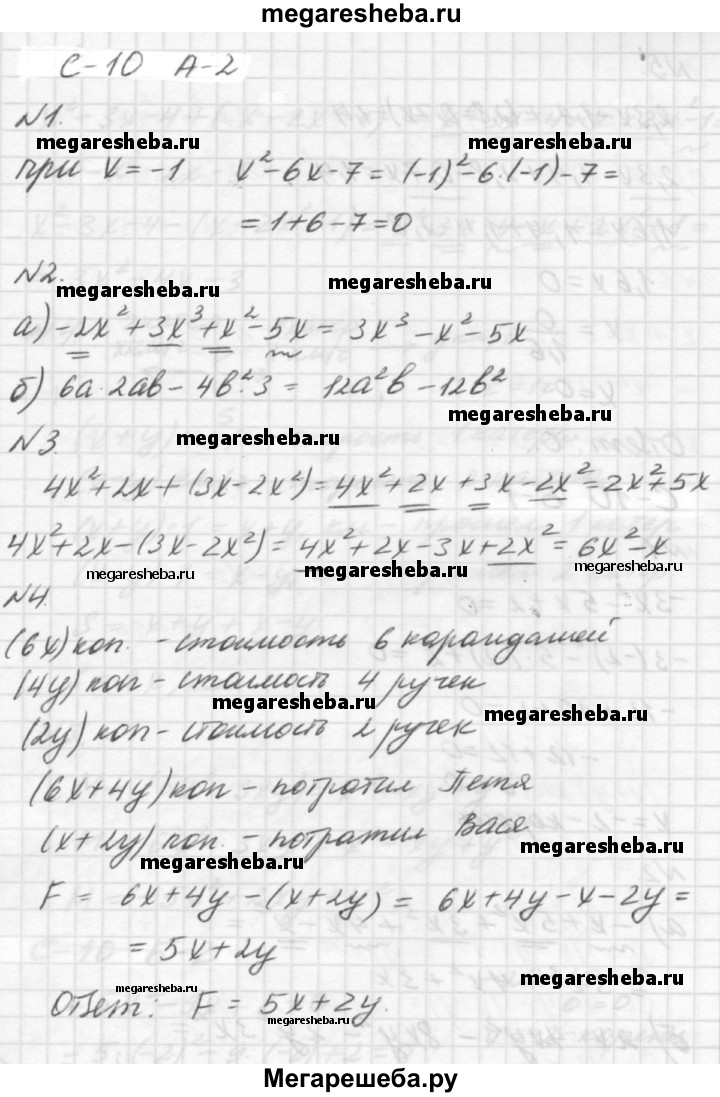 megaresheba.ru
С-10 А-2
N1.
megaresheba.ru megaresheba.ru
при x = -1 x² - 6x - 7 = (-1)² - 6·(-1) - 7 =
= 1 + 6 - 7 = 0
N2.
megaresheba.ru megaresheba.ru
а) -2x² + 3x³ + x² - 5x = 3x³ - x² - 5x
б) 6a·2ab - 4b²·3 = 12a²b - 12b²
megaresheba.ru
N3.
megaresheba.ru
4x² + 2x + (3x - 2x²) = 4x² + 2x + 3x - 2x² = 2x² + 5x
4x² + 2x - (3x - 2x²) = 4x² + 2x - 3x + 2x² = 6x² - x
megaresheba.ru megaresheba.ru megaresheba.ru
N4.
(6x) коп. - стоимость 6 карандашей
(4y) коп - стоимость 4 ручек
megaresheba.ru megaresheba.ru
(2y) коп - стоимость 2 ручек
(6x + 4y) коп - потратил Петя
(x + 2y) коп. - потратил Вася
megaresheba.ru megaresheba.ru
F = 6x + 4y - (x + 2y) = 6x + 4y - x - 2y =
= 5x + 2y
megaresheba.ru megaresheba.ru
Ответ: F = 5x + 2y.
megaresheba.ru
Мегарешеба.ру